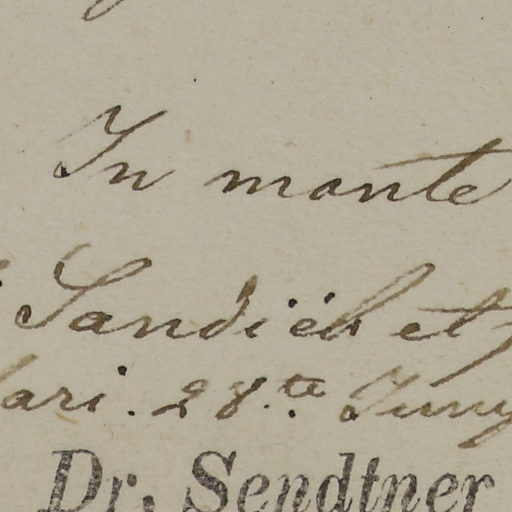 In monte
et
ari. 28.te Juny
Dr. Sendtner